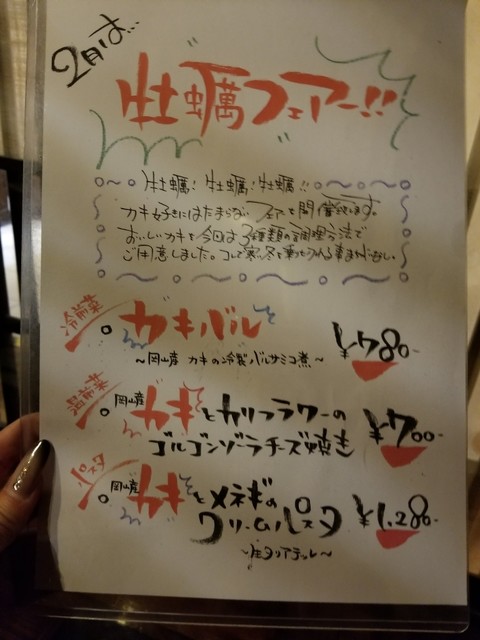 2月は…
牡蠣フェアー!!
牡蠣! 牡蠣! 牡蠣!!
カキ好きにはたまらないフェアを開催致します。
おいしいカキを今回は3種類の調理方法で
ご用意しました。コレで寒い冬を乗りきれる事まちがいなし。
冷前菜
カキバル
¥780-
~岡山産 カキの冷製バルサミコ煮~
温前菜
岡山産 カキとカリフラワーの
ゴルゴンゾーラチーズ焼き
¥700-
パスタ
岡山産 カキとメネギの
クリームパスタ
¥1,280-
~生タリアテッレ~